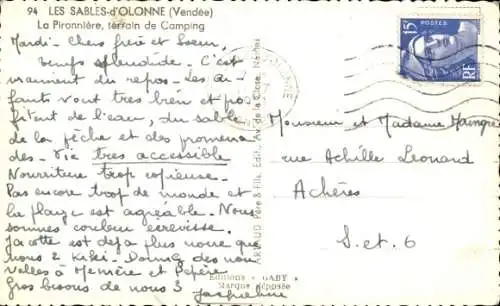 94 LES SABLES-d'OLONNE (Vendée)
La Pironnière, terrain de Camping
Mardi - Chers frère et Soeur,
Temps splendide. C'est
vraiment du repos - Les en-
fants vont très bien et pro-
fitent de l'eau, du sable
de la pêche et des promena
des - Vie très accessible
Nourriture trop copieuse.
Pas encore trop de monde et
la plage est agréable. Nous
sommes couleur écrevisse.
Jacotte est déjà plus noire que
nous 2 - Donnez des nou
velles à Mémère et Pépère
Gros bisous de nous 3
Jacqueline
ARTAUD Père & Fils, Édit., Av. de la Close, Nantes
Editions "GABY"
Marque déposée
15 POSTES
RF
Monsieur et Madame
rue Achille Léonard
Achères
S. et O